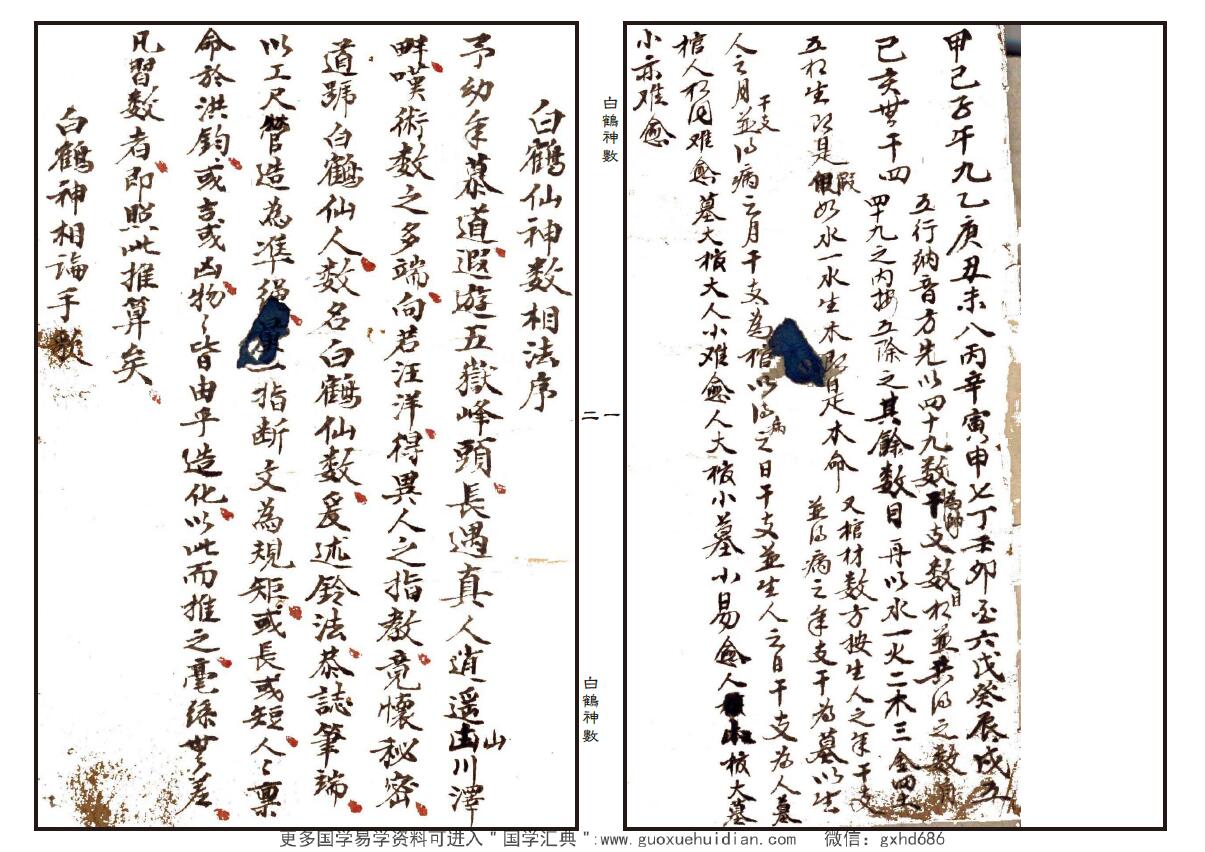 甲己子午九乙庚丑未八丙辛寅申七丁壬卯酉六戊癸辰戌五
己亥無干四
五行納音方先以四十九数干支数目相並共得之数
四十九之内按五除之其餘数目再以水一火二木三金四土
五相生即是假如水一水生木即是木命
又棺材数方按生人之年干支
並得病之年支干為墓以生
人之月干支並得病之月干支為棺以得病之日干支並生人之日干支為人墓
棺人相同难愈墓大棺大人小难愈人大棺小墓小易愈人小棺大墓
小亦难愈
白鶴神數
一
二
白鶴神數
白鶴仙神数相法序
予幼年慕道遐遊五嶽峰頭長遇真人逍遥山川澤
畔嘆術数之多端向若汪洋得異人之指教竟懷秘密
道號白鶴仙人数名白鶴仙数爰述鈴法恭誌筆端
以工尺營造為準繩指断文為規矩或長或短人々禀
命於洪鈞或吉或凶物々皆由乎造化以此而推之毫絲無差
凡習数者即照此推算矣
白鶴神相論手
更多国学易学资料可进入"国学汇典":www.guoxuehuidian.com 微信：gxhd686